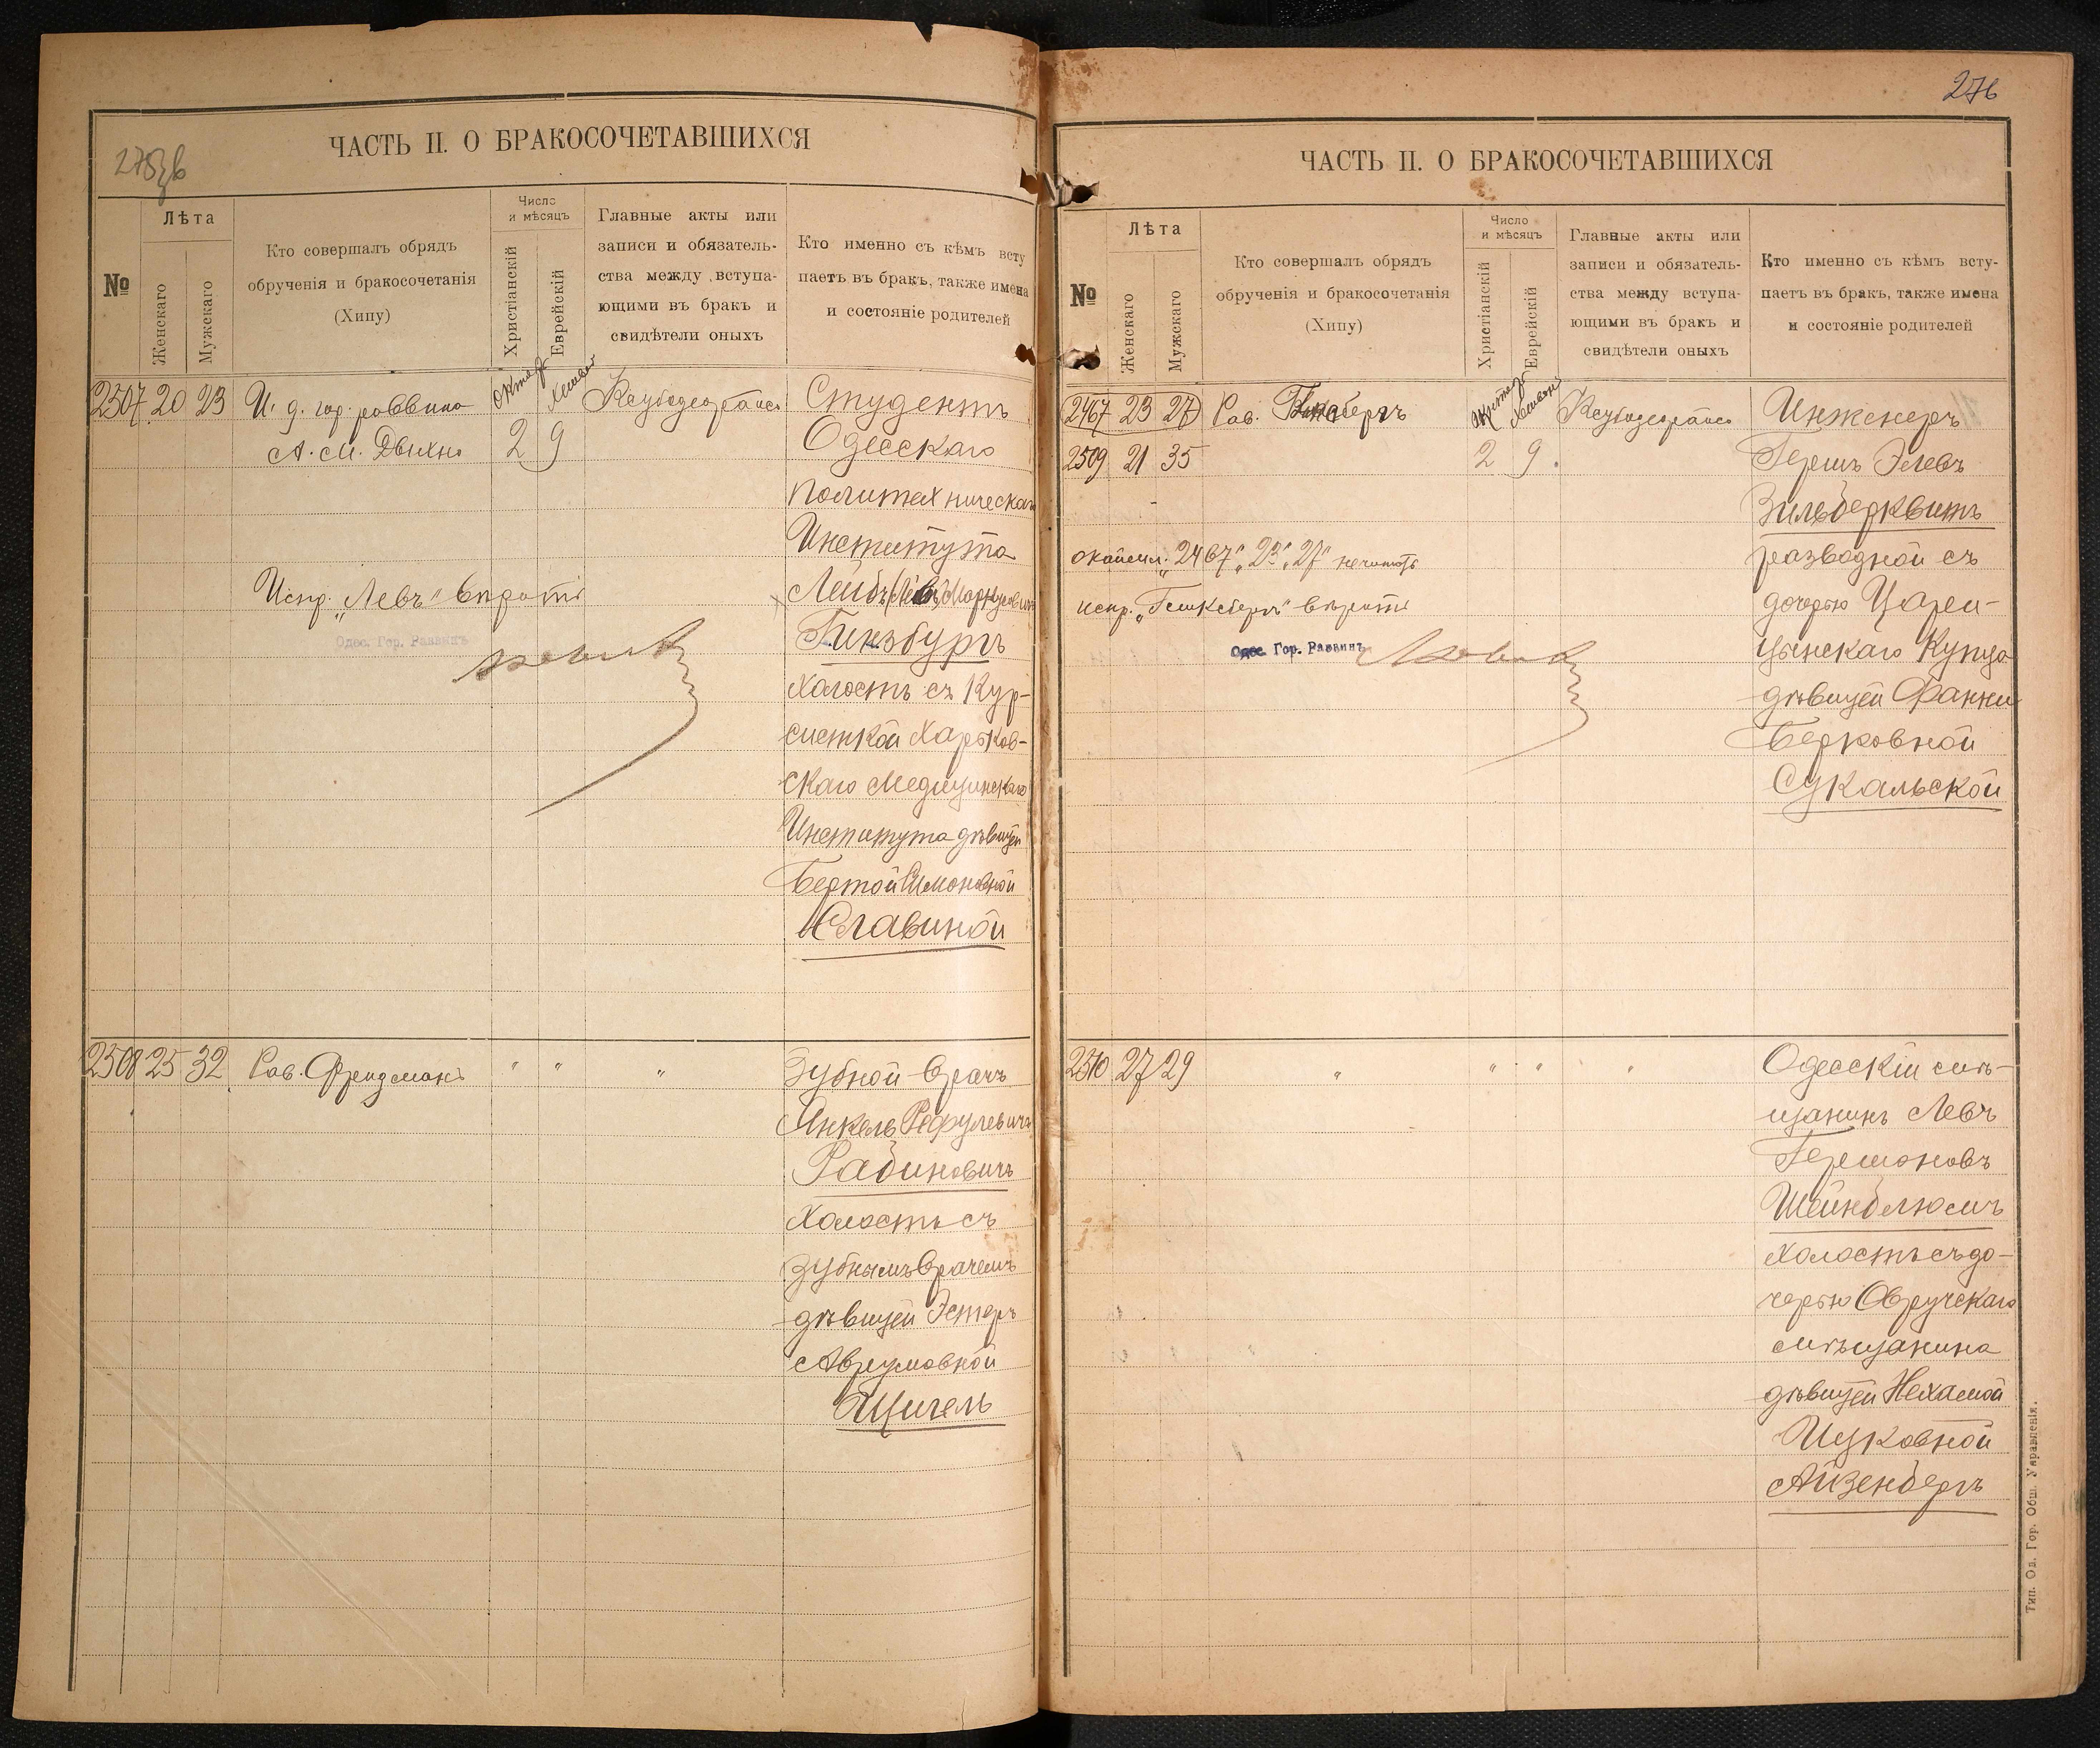 ЧАСТЬ II. О БРАКОСОЧЕТАВШИХСЯ
№
Лѣта
Женскаго
Мужскаго
Кто совершалъ обрядъ
обрученія и бракосочетанія
(Хипу)
Число
и мѣсяцъ
Христіанскій
Еврейскій
Главные акты или
записи и обязатель-
ства между вступа-
ющими въ бракъ и
свидѣтели оныхъ
Кто именно съ кѣмъ всту
паетъ въ бракъ, также имена
и состояніе родителей
2507 20 23
И. д. гор. раввина
А. М. Дыхно
2 9
Студентъ
Одесскаго
политехническаго
Института
Лейбъ (Левъ) Маркусовичъ
Гинзбургъ
холостъ съ Кур-
систкой Харьков-
скаго Медицинскаго
Института дѣвицей
Бертой Симоновной
Славиной
Испр. „Левъ" вѣрить
Одес. Гор. Раввинъ
2508 25 32
Рав. Фридманъ
" " "
Зубной врачъ
Янкель Рефулевичъ
Рабиновичъ
Холостъ съ
зубнымъ врачемъ
дѣвицей Эстеръ
Аврумовной
Щигель
276
ЧАСТЬ II. О БРАКОСОЧЕТАВШИХСЯ
№
Лѣта
Женскаго
Мужскаго
Кто совершалъ обрядъ
обрученія и бракосочетанія
(Хипу)
Число
и мѣсяцъ
Христіанскій
Еврейскій
Главные акты или
записи и обязатель-
ства между вступа-
ющими въ бракъ и
свидѣтели оныхъ
Кто именно съ кѣмъ всту-
паетъ въ бракъ, также имена
и состояніе родителей
2467 23 27
Рав.
2509 21 35
2 9
Инженеръ
Гершъ Элевъ
Зильберквитъ
разводной съ
дочерью Цари-
цынскаго Купца
дѣвицей Фанни
Берковной
Сукальской
окаймл. „2467" „23" „27" не читать
испр.
Одес. Гор. Раввинъ
2510 27 29
" " " "
Одесскій мѣ-
щанинъ Левъ
Гершоновъ
Шейнблюмъ
холостъ съ до-
черью Овручскаго
мѣщанина
дѣвицей Нехамой
Ицковной
Айзенбергъ
Тип. Од. Гор. Общ. Управленія.